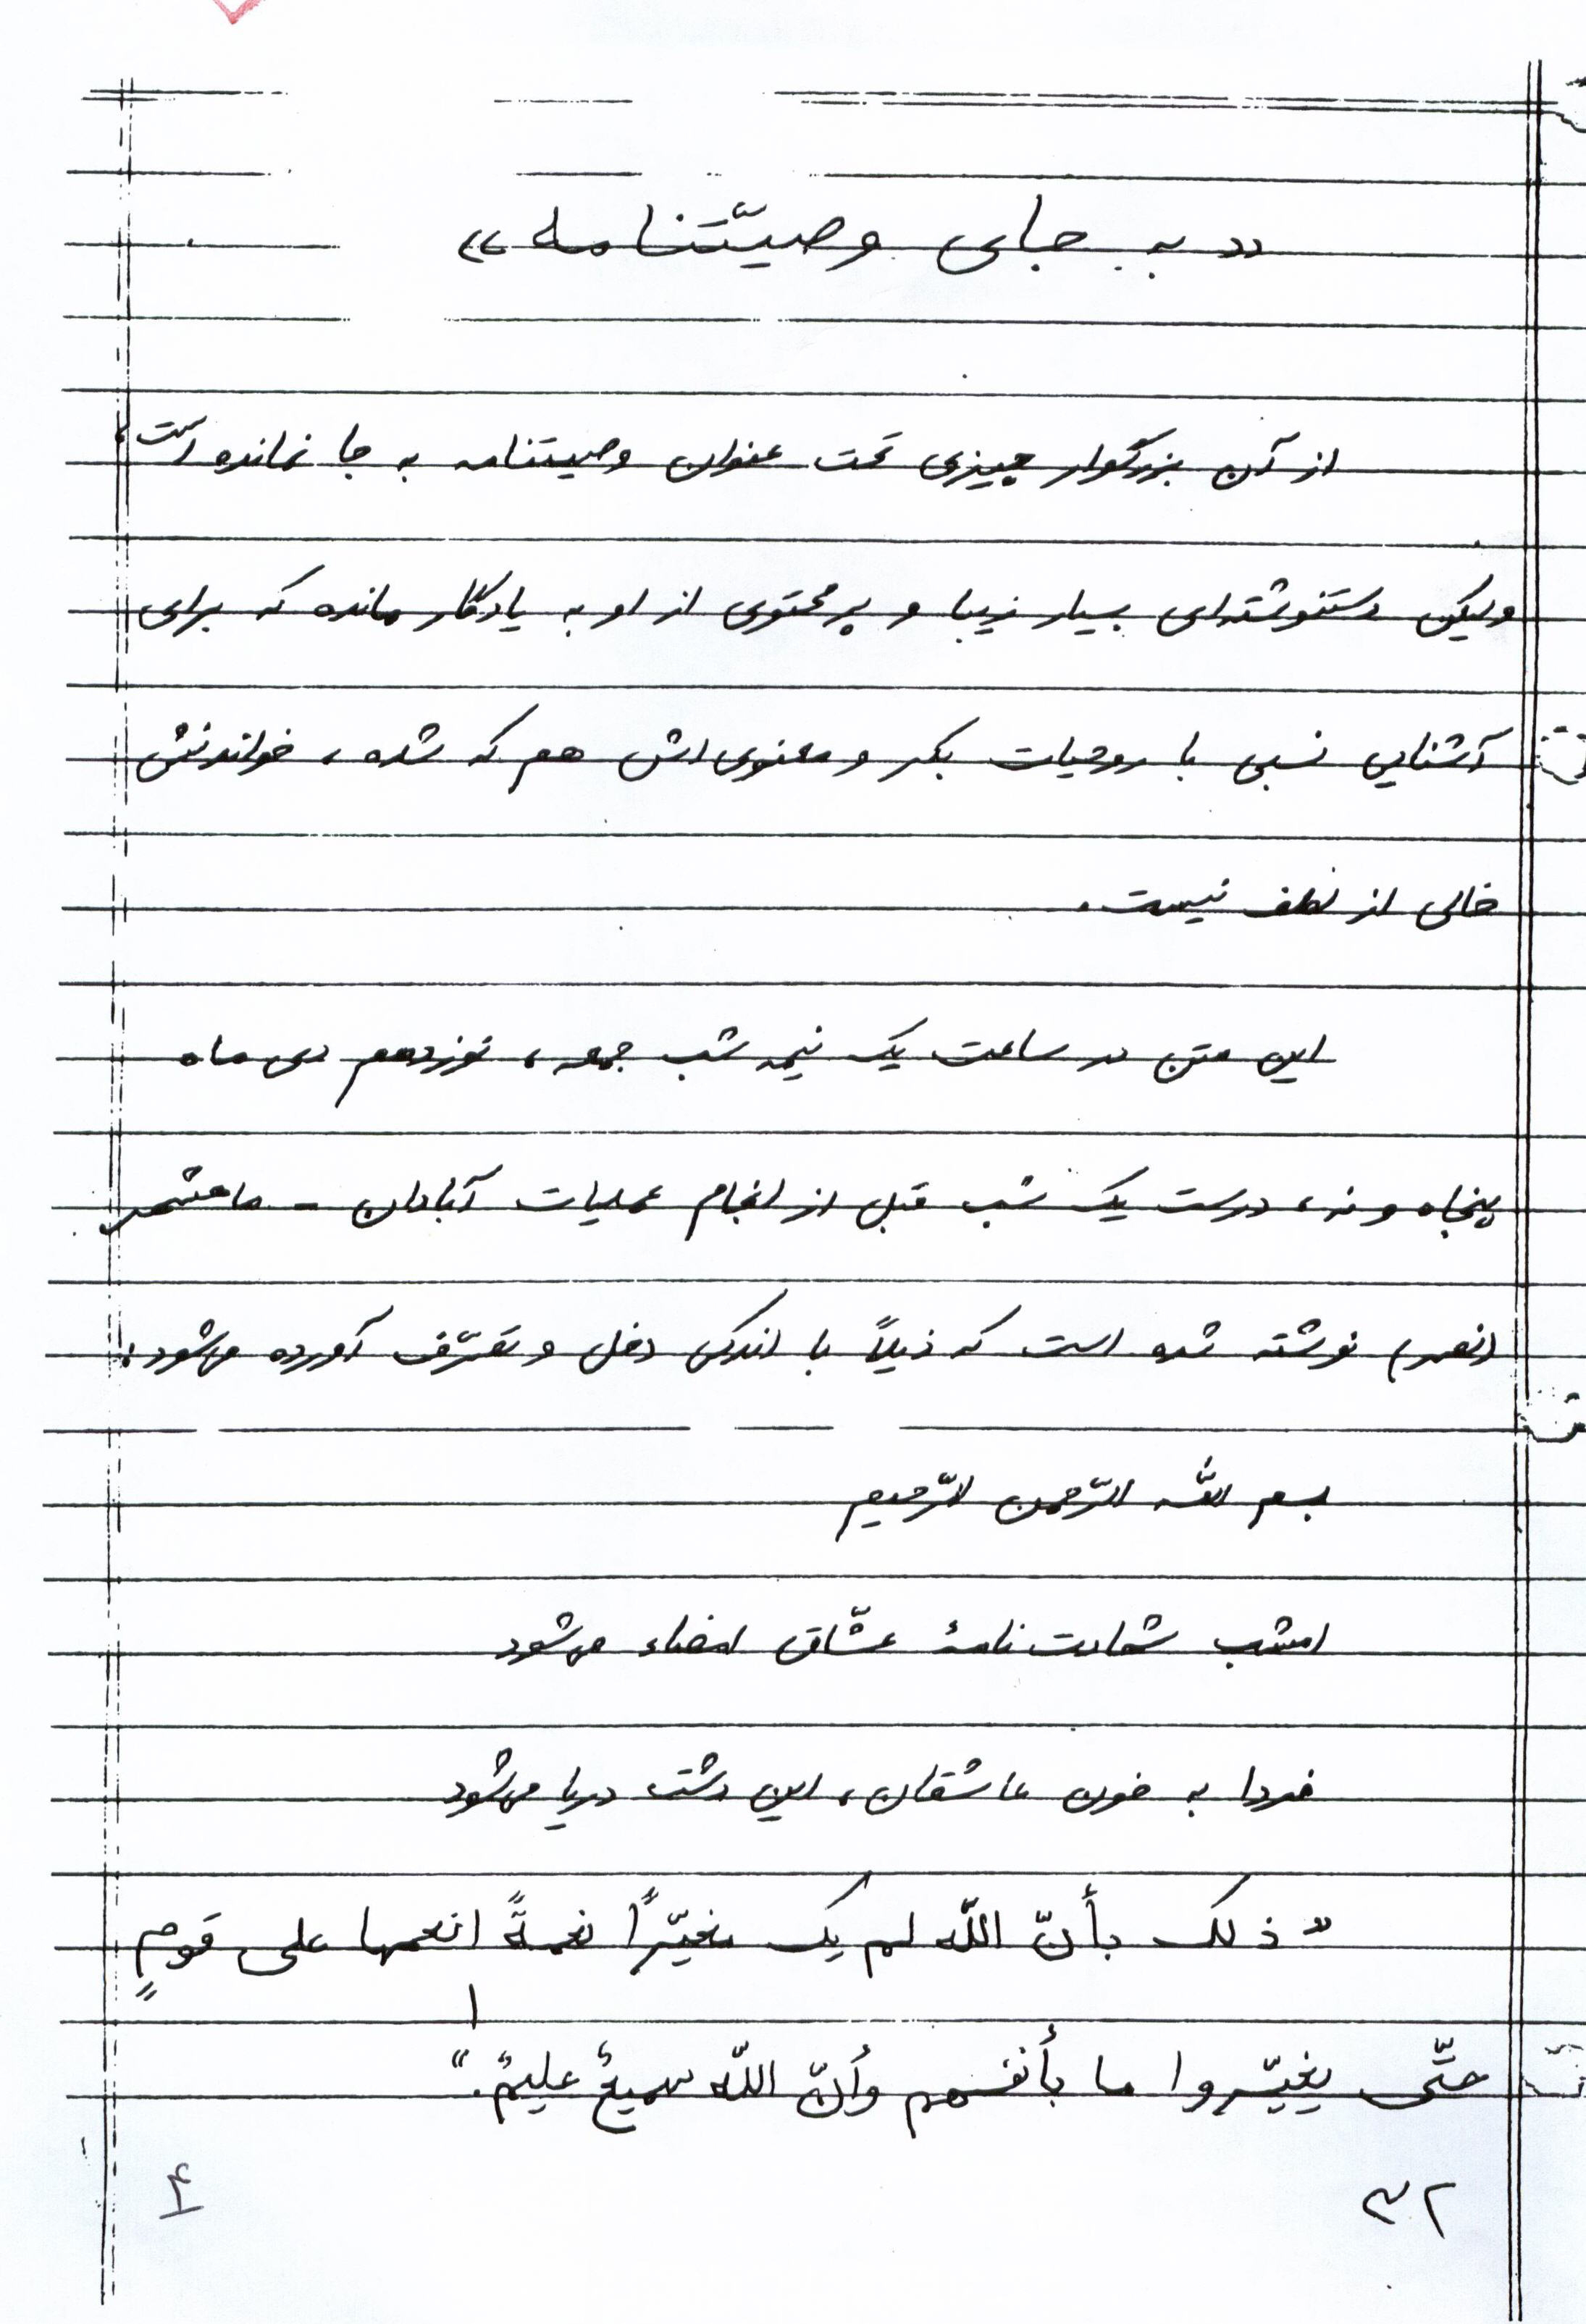 «به جای وصیّتنامه»
از آن بزرگوار چیزی تحت عنوان وصیتنامه به جا نمانده است،
ولیکن دستنوشته‌ای بسیار زیبا و پرمحتوی از او به یادگار مانده که برای
آشنایی نسبی با روحیات بکر و معنوی‌اش هم که شده، خواندنش
خالی از لطف نیست.
این متن در ساعت یک نیمه شب جمعه، نوزدهم دی ماه
پنجاه و نه، درست یک شب قبل از انجام عملیات آبادان - ماهشهر
(نصر) نوشته شده است که ذیلاً با اندکی دخل و تصرّف آورده می‌شود:
بسم الله الرّحمن الرّحیم
امشب شهادت‌نامهٔ عشّاق امضاء می‌شود
فردا به خون عاشقان، این دشت دریا می‌شود
"ذلک بأنّ اللّه لم یک مغیّراً نعمةً انعمها علی قومٍ
حتّی یغیّروا ما بأنفسهم وأنّ اللّه سمیعٌ علیمٌ."
۱
۳۲
۴